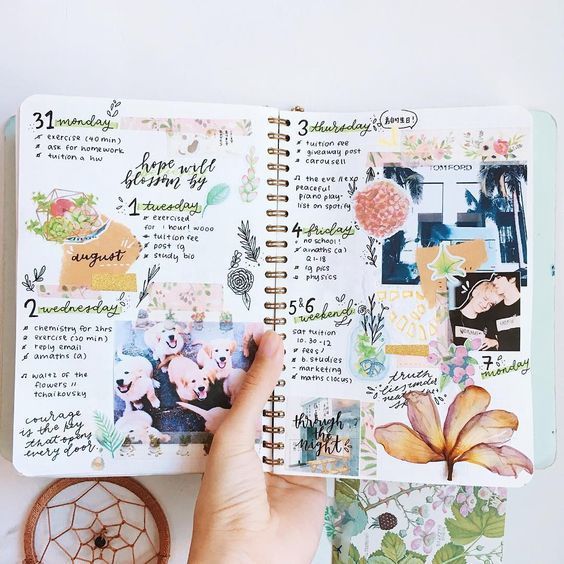 31 monday
exercise (40 min)
ask for homework
tuition a hw
hope will
blossom by
1 tuesday
exercised
for 1 hour! wooo
tuition fee
post ig
study bio
august
2 wednesday
chemistry for 2hrs
exercise (20 min)
reply email
amaths (a)
waltz of the
flowers //
tchaikovsky
courage
is the key
that opens
every door.
3 thursday
tuition fee
giveaway post
carousell
the eve // exo
peaceful
piano play-
list on spotify
TOM FORD
4 friday
no school!
amaths (a)
Q1-18
ig pics
physics
5&6
weekend
sat tuition
10.30-12
fees/
b.studies
- marketing
maths (locus)
7 monday
truth
lies under
through
the
night